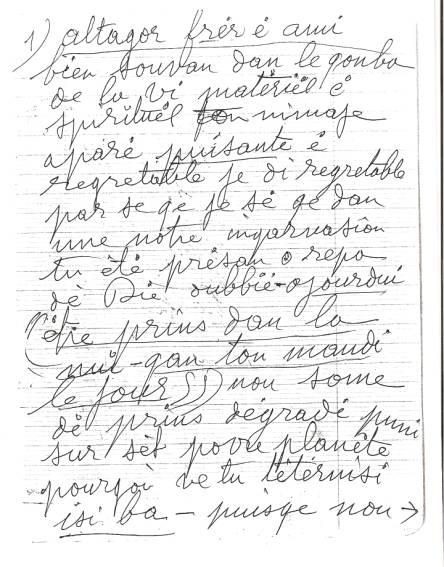 1) altagor frér é ami
bien souvan dan le gouba
de la vi matériél é
spirituél ton nimaje
aparé puisante é
regretable je di regretable
par se gé je sé ge dan
une notre ingarnasion
tu été présan o repa
dé Dié oubbié - ojourdui
étie prins dan la
nui - gan ton maudi
le jour)) nou some
dé prins dégradé puni
sur sét povre planéte
pourgoi ve tu tétérnisé
isi ba - puisge nou →